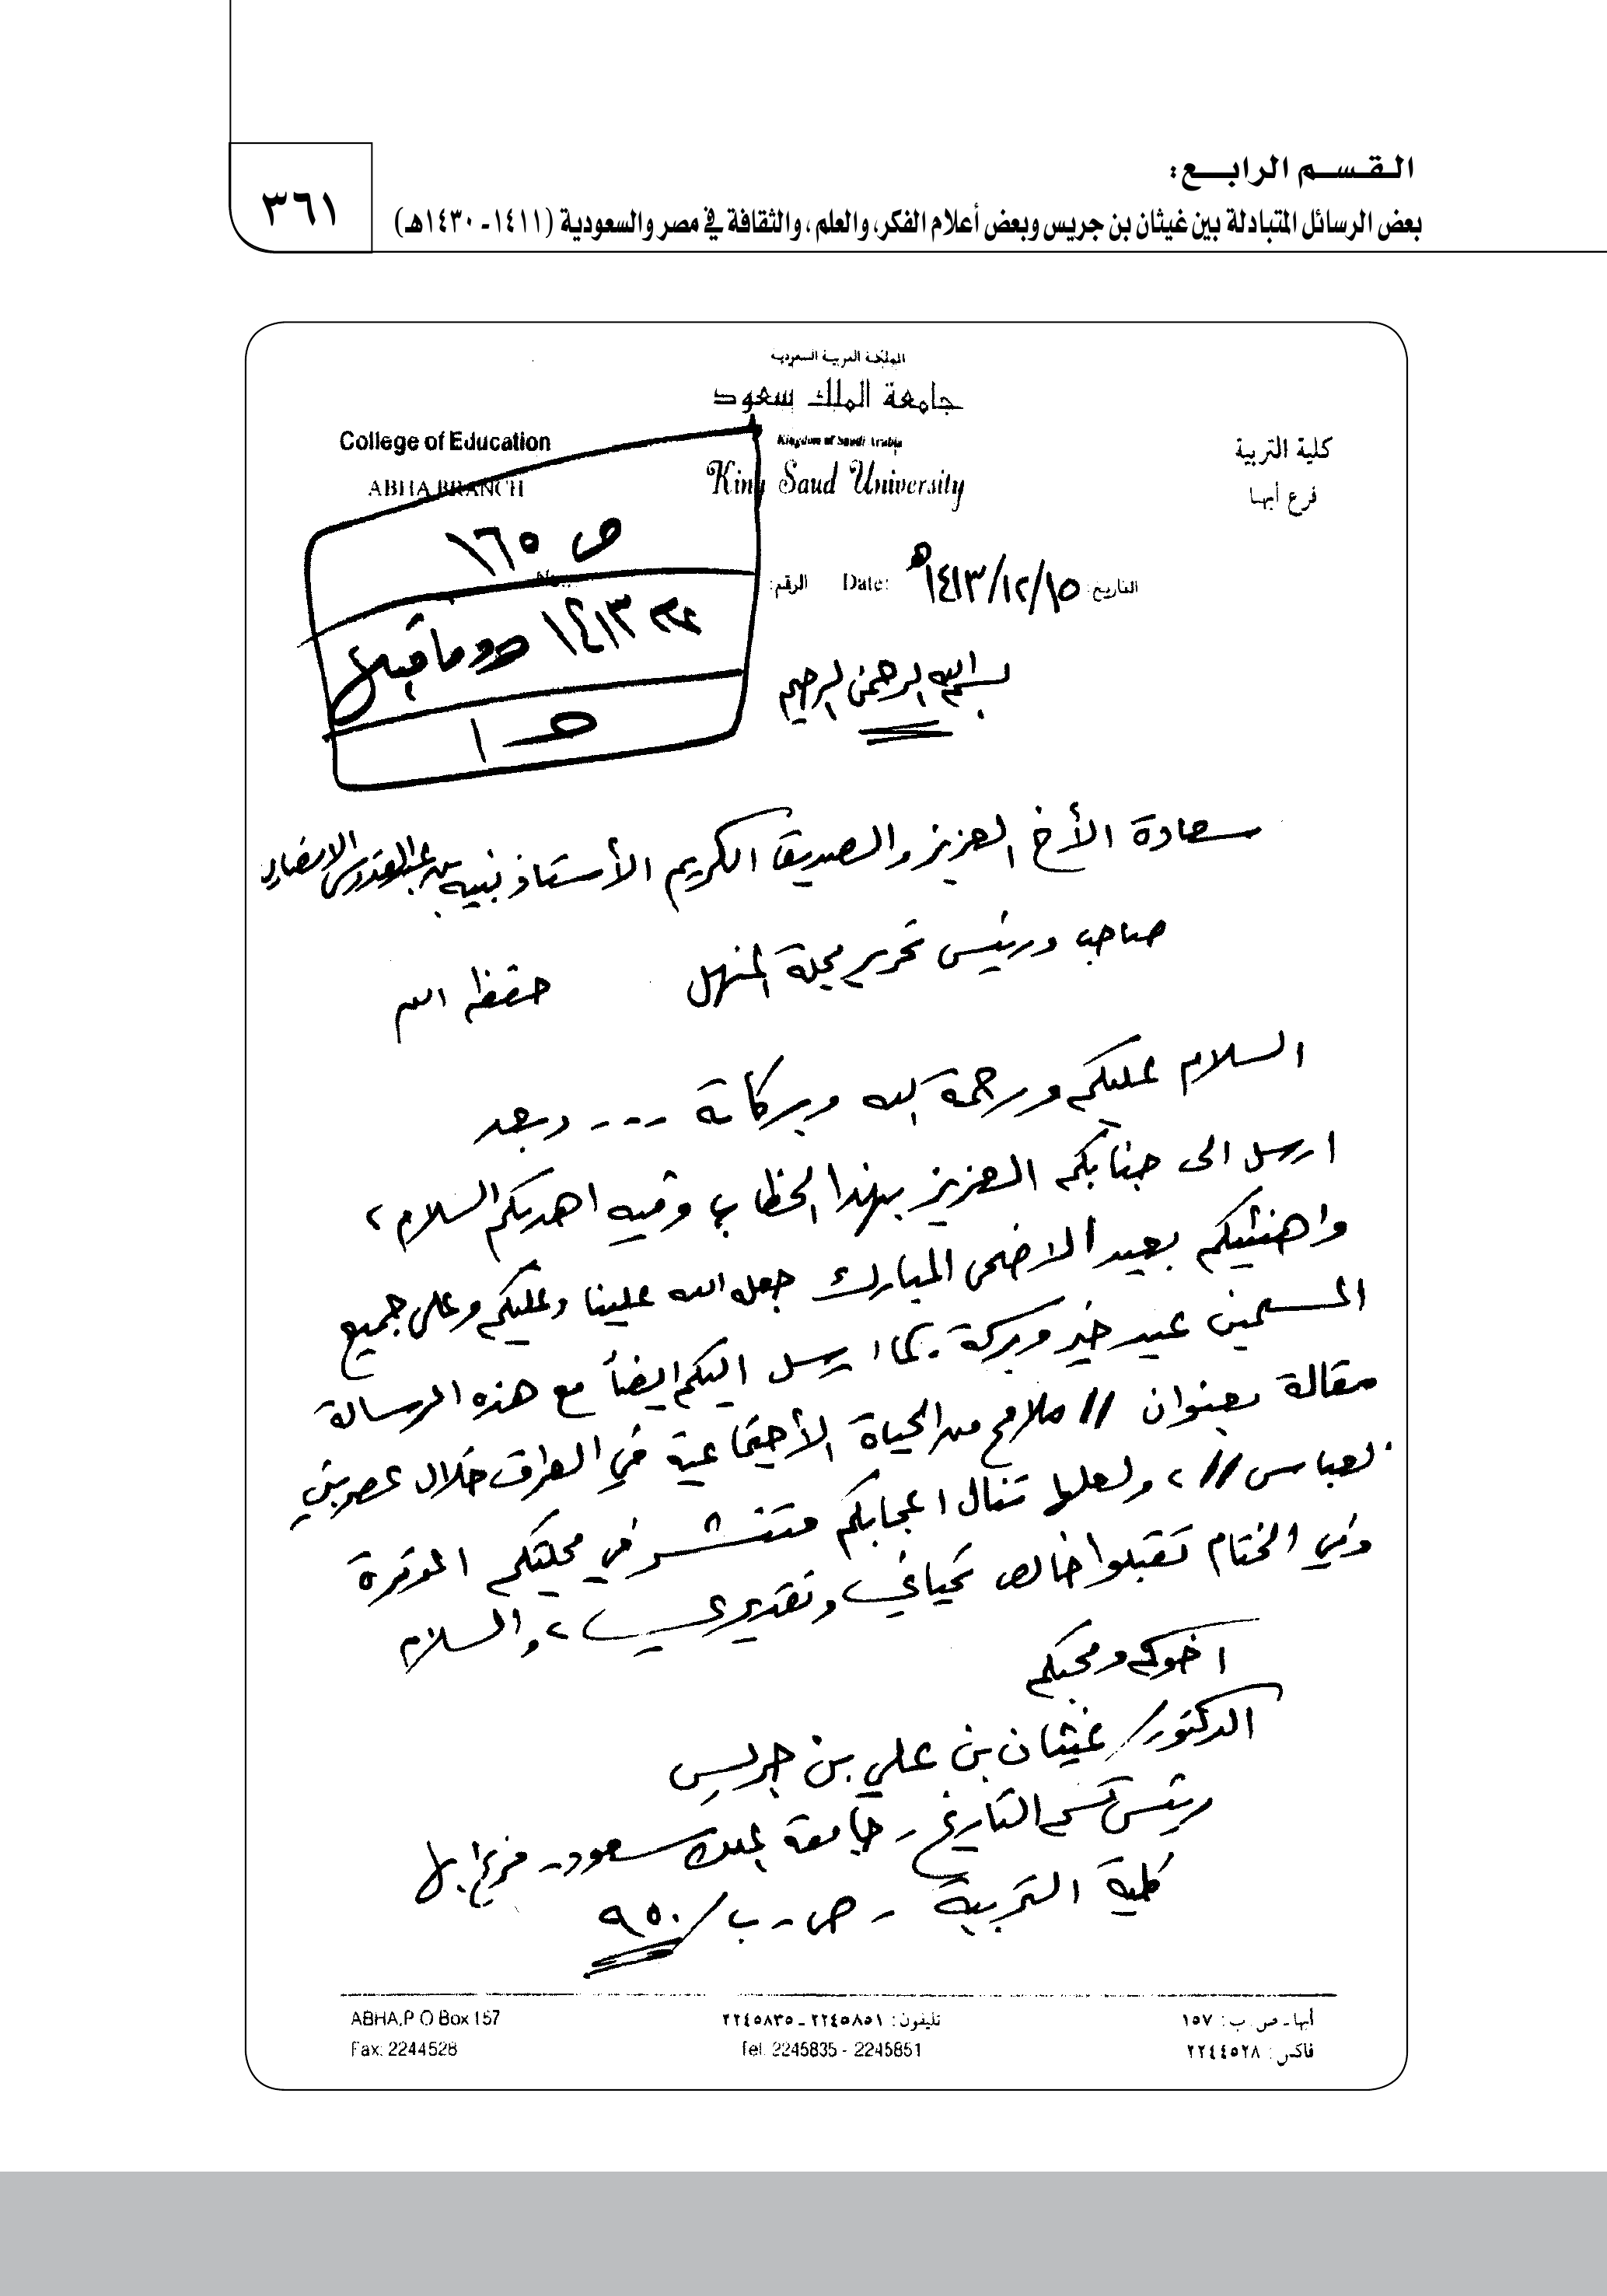 القسم الرابع:
بعض الرسائل المتبادلة بين غيثان بن جريس وبعض أعلام الفكر، والعلم، والثقافة في مصر والسعودية (١٤١١ـ ١٤٣٠هـ)
٣٦١
المملكة العربية السعودية
جامعة الملك سعود
Kingdom of Saudi Arabia
King Saud University
كلية التربية
فرع أبها
College of Education
ABHA BRANCH
التاريخ: ١٤١٣/١٢/١٥هـ Date: الرقم: No.
ص ١٦٥
١٤١٣ وما قبل
بسم الله الرحمن الرحيم
سعادة الأخ العزيز والصديق الكريم الأستاذ نبيه بن عبدالقدوس الانصاري
صاحب ورئيس تحرير مجلة المنهل حفظه الله
السلام عليكم ورحمة الله وبركاته ---- وبعد
ارسل الى جنابكم العزيز بهذا الخطاب وفيه اهديكم السلام ،
واهنئيكم بعيد الاضحى المبارك جعله الله علينا وعليكم وعلى جميع
المسلمين عيد خير وبركة . كما ارسل اليكم ايضاً مع هذه الرسالة
مقالة بعنوان // ملامح من الحياة الأجتماعية في العراق خلال عصر بني
العباس // ، ولعلها تنال اعجابكم فتنشر في مجلتكم الموقرة
وفي الختام تقبلوا خالص تحياتي وتقديري ، والسلام
اخوكم ومحبكم
الدكتور / غيثان بن علي بن جريس
رئيس قسم التاريخ - جامعة الملك سعود - فرع ابها
كلية التربية - ص - ب / ٩٥٠
أبها ـ ص . ب : ١٥٧
تليفون : ٢٢٤٥٨٥١ ـ ٢٢٤٥٨٣٥
ABHA,P O Box 157
فاكس : ٢٢٤٤٥٢٨
Tel. 2245835 - 2245851
Fax: 2244528